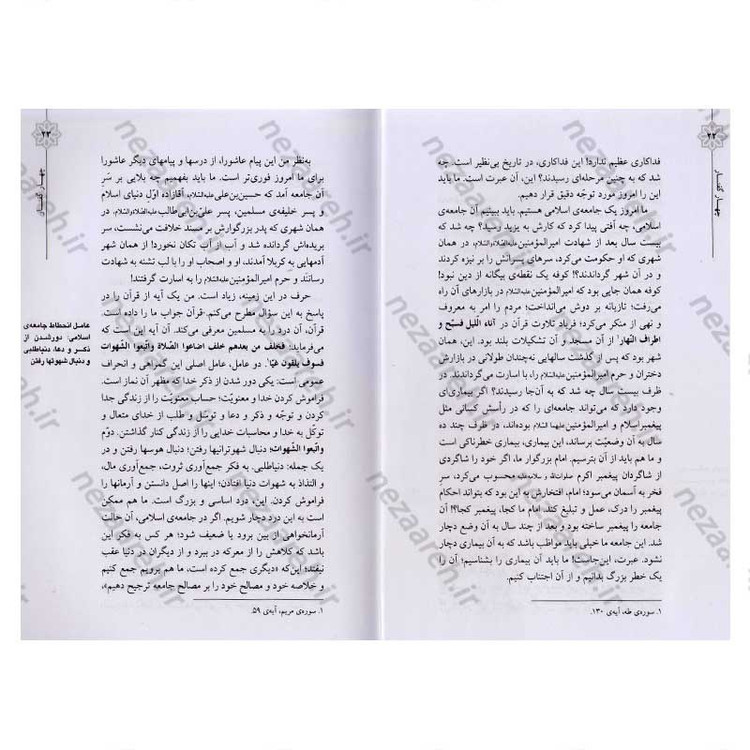 ۲۲
چهار گفتار
فداکاری عظیم ندارد! این فداکاری، در تاریخ بی‌نظیر است. چه
شد که به چنین مرحله‌ای رسیدند؟ این، آن عبرت است. ما باید
این را امروز مورد توجّه دقیق قرار دهیم.
ما امروز یک جامعه‌ی اسلامی هستیم. باید ببینیم آن جامعه‌ی
اسلامی، چه آفتی پیدا کرد که کارش به یزید رسید؟ چه شد که
بیست سال بعد از شهادت امیرالمؤمنین علیه‌السّلام، در همان
شهری که او حکومت می‌کرد، سرهای پسرانش را بر نیزه کردند
و در آن شهر گرداندند؟! کوفه یک نقطه‌ی بیگانه از دین نبود!
کوفه همان جایی بود که امیرالمؤمنین علیه‌السّلام در بازارهای آن راه
می‌رفت؛ تازیانه بر دوش می‌انداخت؛ مردم را امر به معروف
و نهی از منکر می‌کرد؛ فریاد تلاوت قرآن در آناء اللّیل فسبّح و
اطراف النّهار۱ از آن مسجد و آن تشکیلات بلند بود. این، همان
شهر بود که پس از گذشت سالهایی نه‌چندان طولانی در بازارش
دختران و حرم امیرالمؤمنین علیه‌السّلام را، با اسارت می‌گرداندند. در
ظرف بیست سال چه شد که به آن‌جا رسیدند؟ اگر بیماری‌ای
وجود دارد که می‌تواند جامعه‌ای را که در رأسش کسانی مثل
پیغمبر اسلام و امیرالمؤمنین علیهما السّلام بوده‌اند، در ظرف چند ده
سال به آن وضعیّت برساند، این بیماری، بیماری خطرناکی است
و ما هم باید از آن بترسیم. امام بزرگوار ما، اگر خود را شاگردی
از شاگردان پیغمبر اکرم صلوات‌الله و سلامه علیه محسوب می‌کرد، سر
فخر به آسمان می‌سود؛ امام، افتخارش به این بود که بتواند احکام
پیغمبر را درک، عمل و تبلیغ کند. امام ما کجا، پیغمبر کجا؟! آن
جامعه را پیغمبر ساخته بود و بعد از چند سال به آن وضع دچار
شد. این جامعه ما خیلی باید مواظب باشد که به آن بیماری دچار
نشود. عبرت، این‌جاست! ما باید آن بیماری را بشناسیم؛ آن را
یک خطر بزرگ بدانیم و از آن اجتناب کنیم.
۱. سوره‌ی طه، آیه‌ی ۱۳۰.
۲۳
چهار گفتار
به‌نظر من این پیام عاشورا، از درسها و پیامهای دیگر عاشورا
برای ما امروز فوری‌تر است. ما باید بفهمیم چه بلایی بر سَرِ
آن جامعه آمد که حسین‌بن‌علی علیه‌السّلام، آقازاده اوّل دنیای اسلام
و پسر خلیفه‌ی مسلمین، پسر علی‌بن‌ابی‌طالب علیه‌الصّلاةوالسّلام، در
همان شهری که پدر بزرگوارش بر مسند خلافت می‌نشست، سر
بریده‌اش گردانده شد و آب از آب تکان نخورد! از همان شهر
آدمهایی به کربلا آمدند، او و اصحاب او را با لب تشنه به شهادت
رساندند و حرم امیرالمؤمنین علیه‌السّلام را به اسارت گرفتند!
حرف در این زمینه، زیاد است. من یک آیه از قرآن را در
پاسخ به این سؤال مطرح می‌کنم. قرآن جواب ما را داده است.
قرآن، آن درد را به مسلمین معرفی می‌کند. آن آیه این است که
می‌فرماید: «فخلف من بعدهم خلف اضاعوا الصّلاة واتّبعوا الشّهوات
فسوف یلقون غیّا».۱ دو عامل، عامل اصلی این گمراهی و انحراف
عمومی است: یکی دور شدن از ذکر خدا که مظهر آن نماز است.
فراموش کردن خدا و معنویّت؛ حساب معنویّت را از زندگی جدا
کردن و توجّه و ذکر و دعا و توسّل و طلب از خدای متعال و
توکّل به خدا و محاسبات خدایی را از زندگی کنار گذاشتن. دوّم
واتّبعوا الشّهوات؛ دنبال شهوترانیها رفتن؛ دنبال هوسها رفتن و در
یک جمله: دنیاطلبی. به فکر جمع‌آوری ثروت، جمع‌آوری مال،
و التذاذ به شهوات دنیا افتادن؛ اینها را اصل دانستن و آرمانها را
فراموش کردن. این، درد اساسی و بزرگ است. ما هم ممکن
است به این درد دچار شویم. اگر در جامعه‌ی اسلامی، آن حالت
آرمانخواهی از بین برود یا ضعیف شود؛ هر کس به فکر این
باشد که کلاهش را از معرکه در ببرد و از دیگران در دنیا عقب
نیفتد؛ این‌که «دیگری جمع کرده است، ما هم برویم جمع کنیم
و خلاصه خود و مصالح خود را بر مصالح جامعه ترجیح دهیم»،
عامل انحطاط جامعه‌ی
اسلامی، دورشدن از
ذکر و دعا، دنیاطلبی
و دنبال شهوتها رفتن
۱. سوره‌ی مریم، آیه‌ی ۵۹.
nezaareh.ir